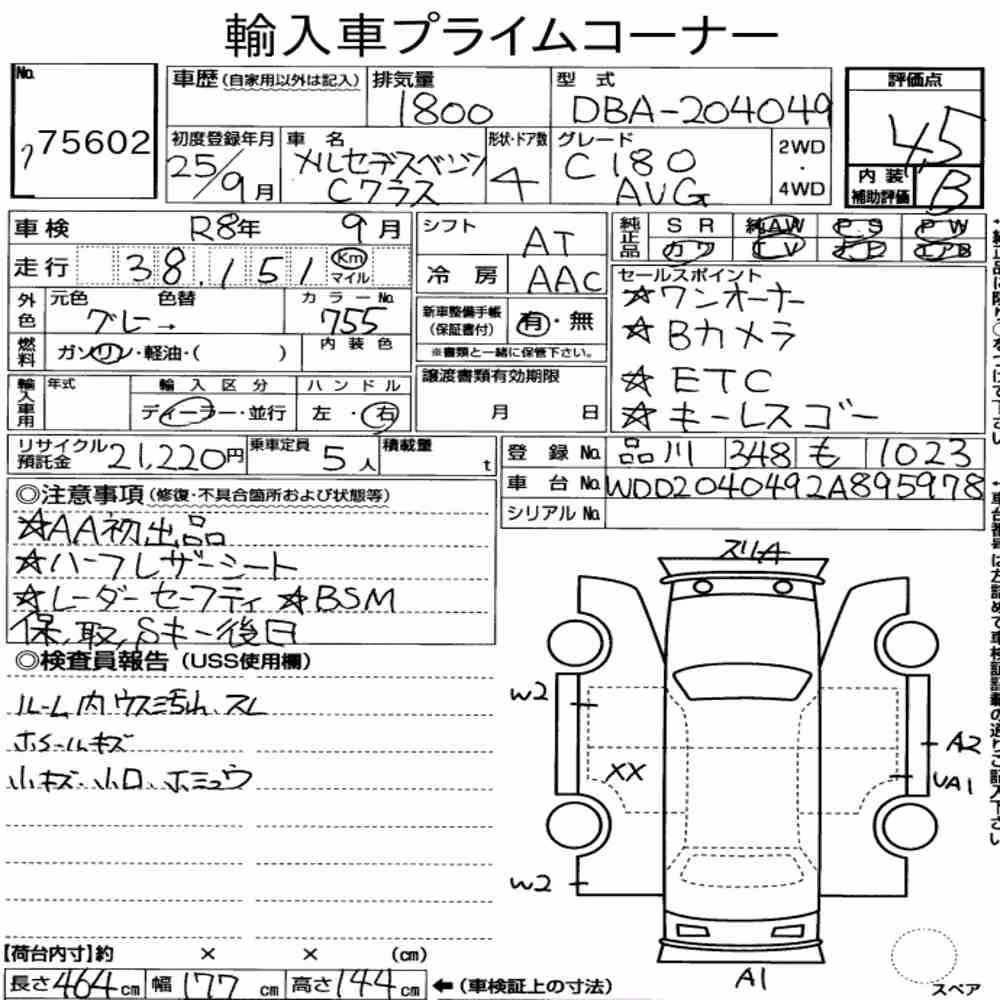 輸入車プライムコーナー
No. 75602
車歴(自家用以外は記入)
排気量 1800
型式 DBA-204049
評価点 45
初度登録年月 25/9月
車名 メルセデスベンツ Cクラス
形状・ドア数 4
グレード C180 AVG
2WD・4WD
内装補助評価 B
車検 R8年 9月
シフト AT
純正品 SR 純AW P.S P W
カワ TV ナビ エアB
走行 38,151 Km マイル
冷房 AAC
セールスポイント
☆ワンオーナー
☆Bカメラ
☆ETC
☆キーレスゴー
外色 元色 色替 グレー→
カラーNo. 755
内装色
新車整備手帳(保証書付) 有・無
※書類と一緒に保管下さい。
燃料 ガソリン・軽油・( )
輸入車用 年式 輸入区分 ハンドル
ディーラー・並行 左・右
譲渡書類有効期限
月 日
リサイクル預託金 21,220円
乗車定員 5人
積載量 t
登録No. 品川 348 も 1023
車台No. WDD2040492A895978
シリアルNo.
◎注意事項(修復・不具合箇所および状態等)
☆AA初出品
☆ハーフレザーシート
☆レーダーセーフティ ☆BSM
保、取、Sキー後日
◎検査員報告(USS使用欄)
ルーム内ウス汚れ、スレ
ホイールキズ
小キズ、小凹、
スリA
W2
A2
XX
UA1
W2
A1
スペア
【荷台内寸】約 × × (cm)
長さ464cm 幅177cm 高さ144cm ←(車検証上の寸法)
車台番号は左詰めで車検証記載の通りご記入下さい